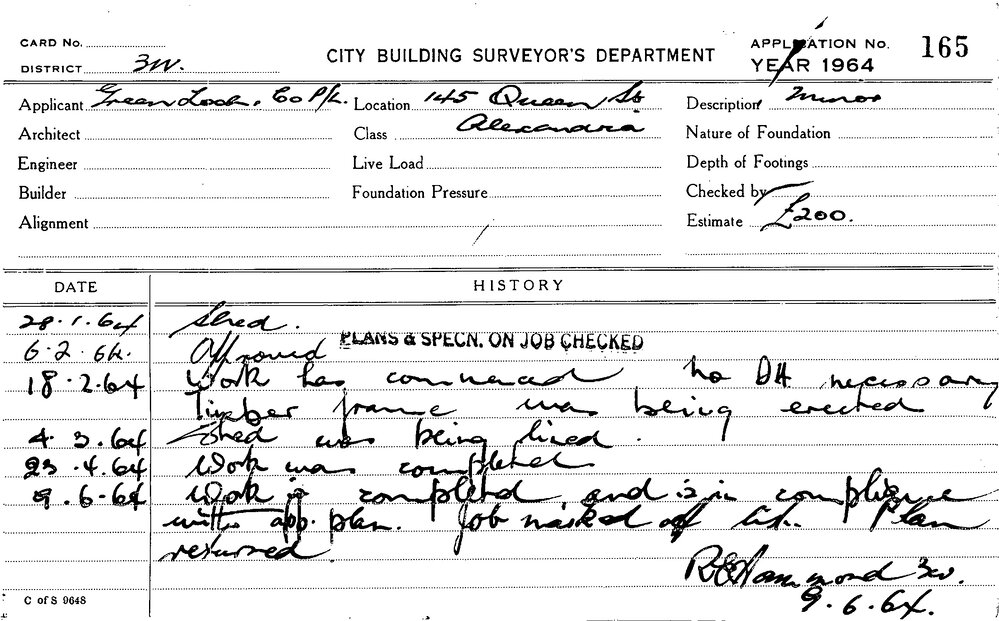 CARD No.
DISTRICT 3W.
CITY BUILDING SURVEYOR'S DEPARTMENT
APPLICATION No. 165
YEAR 1964
Applicant Green Lock, Co P/L. Location 145 Queen St Description Minor
Architect Class Alexandria Nature of Foundation
Engineer Live Load Depth of Footings
Builder Foundation Pressure Checked by
Alignment Estimate £200.
DATE HISTORY
28.1.64 Shed.
6.2.64. Approved PLANS & SPECN. ON JOB CHECKED
18.2.64 Work has commenced no DH necessary
Timber frame was being erected
4.3.64 Shed was being lined.
23.4.64 Work was completed.
9.6-64 Work is completed and is in compliance
with app. plan. Job marked off list. Plan
returned
R E Hammond 3W.
9.6.64.
C of S 9648